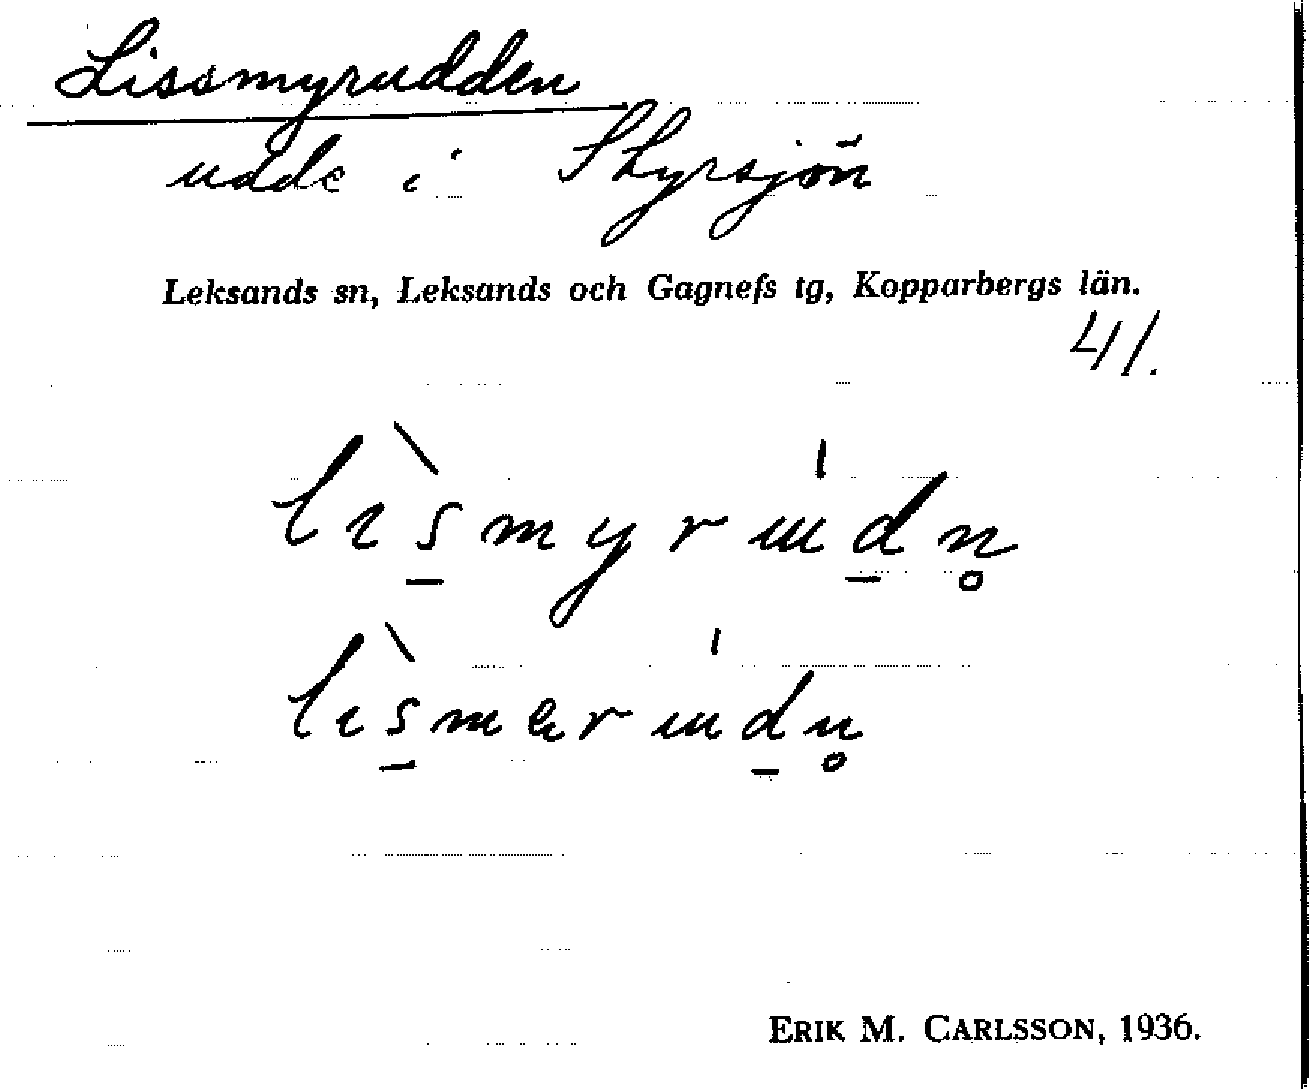 Lissmyrudden
udde i Styrsjön
Leksands sn, Leksands och Gagnefs tg, Kopparbergs län.
41.
lɪ̀s̠myrɯ́d̠n̥
lɪ̀s̠merɯ́d̠n̥
ERIK M. CARLSSON, 1936.